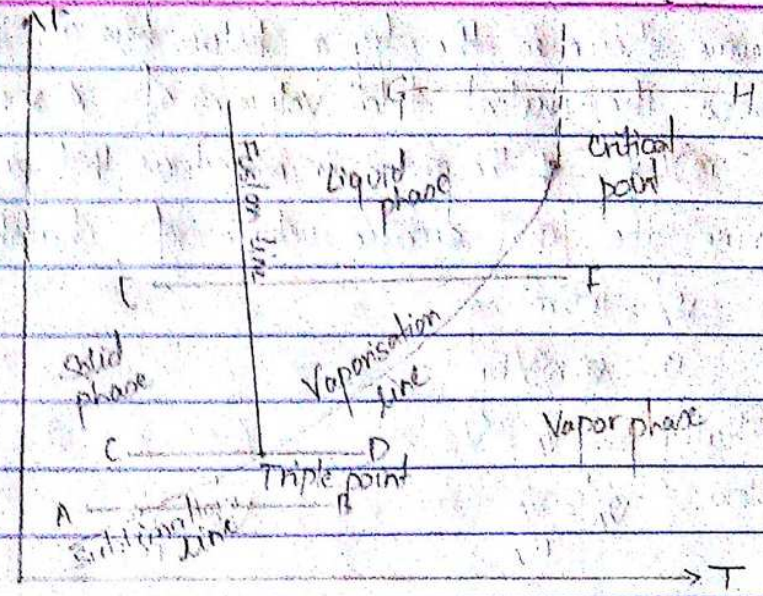 G H
Critical
point
Liquid
phase
Fusion line
F
Solid
phase
Vaporisation
line
Vapor phase
C D
Triple point
A B
Sublimation
line
T